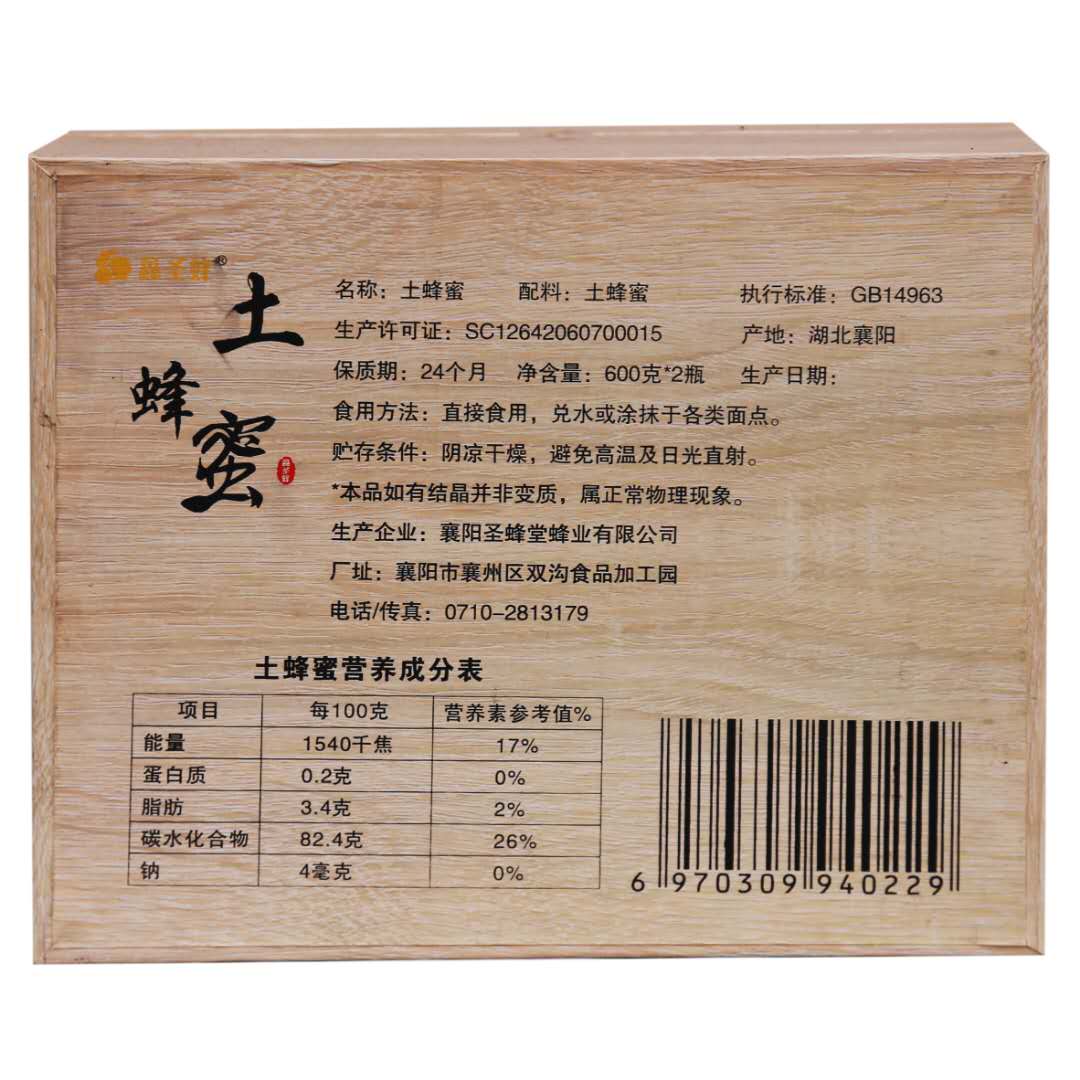 土蜂蜜
名称：土蜂蜜 配料：土蜂蜜 执行标准：GB14963
生产许可证：SC12642060700015 产地：湖北襄阳
保质期：24个月 净含量：600克*2瓶 生产日期：
食用方法：直接食用，兑水或涂抹于各类面点。
贮存条件：阴凉干燥，避免高温及日光直射。
*本品如有结晶并非变质，属正常物理现象。
生产企业：襄阳圣蜂堂蜂业有限公司
厂址：襄阳市襄州区双沟食品加工园
电话/传真：0710-2813179
土蜂蜜营养成分表
项目 每100克 营养素参考值%
能量 1540千焦 17%
蛋白质 0.2克 0%
脂肪 3.4克 2%
碳水化合物 82.4克 26%
钠 4毫克 0%
6 970309 940229